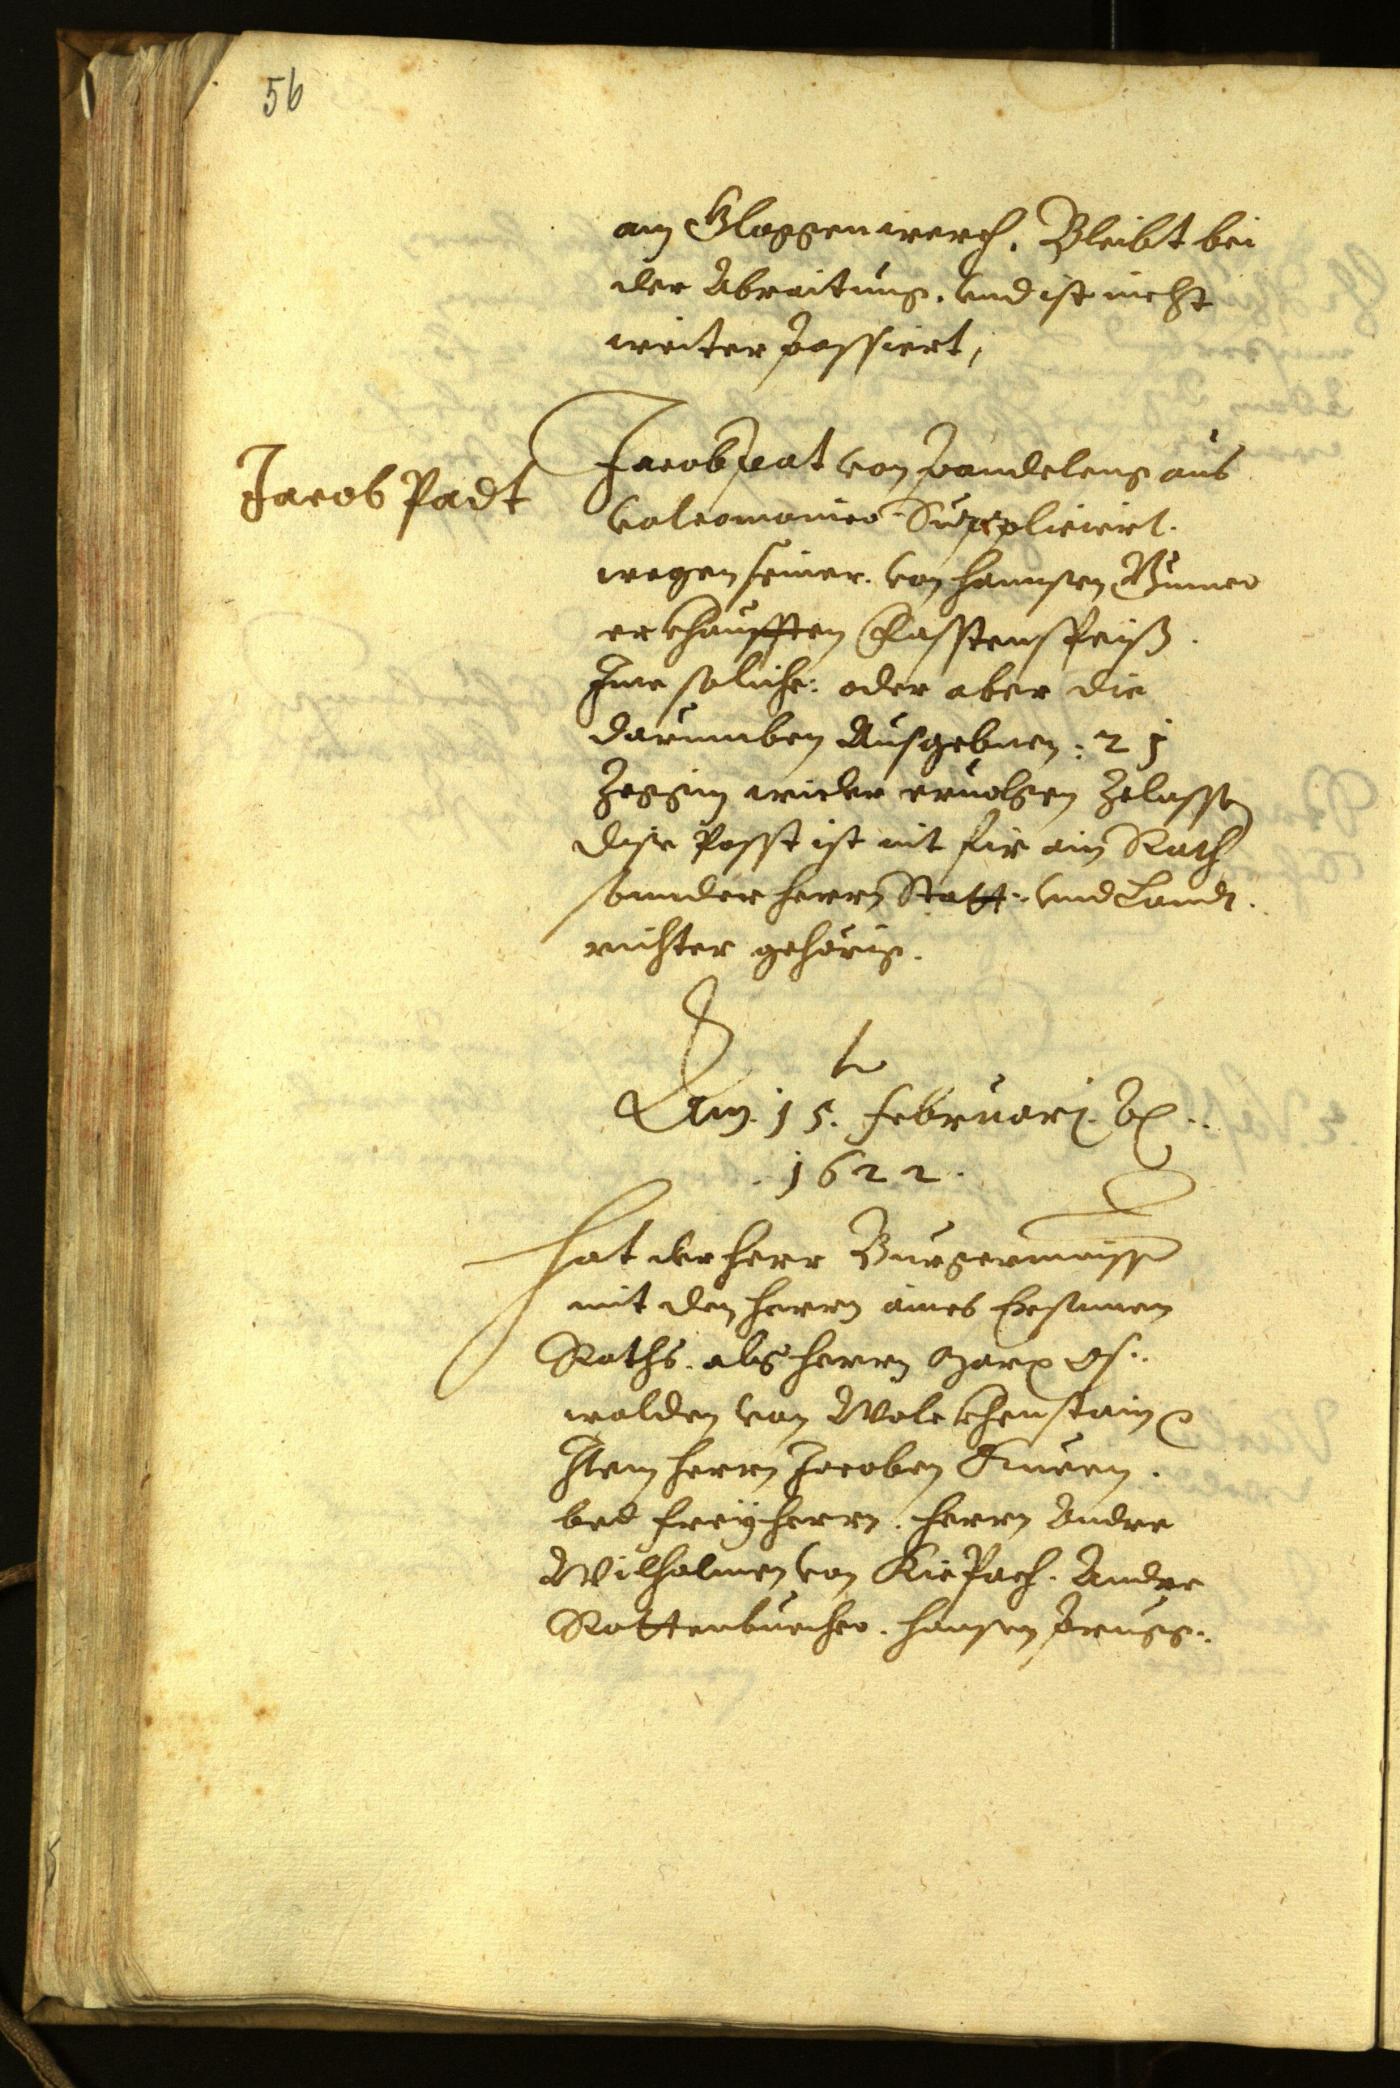 56
am Gloggenwerch. Bleibt bei
der Abraitung. vnd ist nicht
weiter passiert,
Jacob Padt
Jacob pat von pandeleng aus
valcomonico Suppliciert.
wegen seiner. von hannsen
erkhaufften Fasstenspeiß.
Ime soliche: oder aber die
darumben Ausgebnen: 21
Zeggin wider ervolgen Zelassen
dise Posst ist nit für ain Rath
sonnder herrn Statt: vnd Landt.
richter gehörig.
Den. 15. februarj. Ao.
.1622.
hat der herr Burgermaister
mit den herrn aines Ersamen
Raths. als herrn Marx Os:
walden von Wolckhenstain
Item herrn Jacoben Kuen.
bed freyherrn. herrn Andre
Wilhalmen von Kiepach. Andre
Rottenbuecher. hansen prugg: